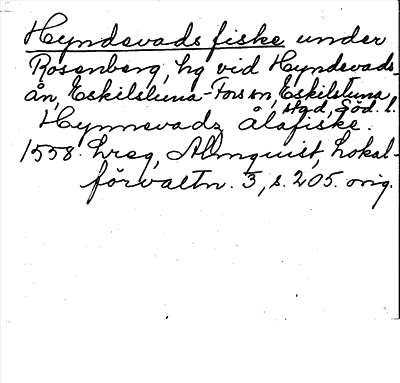 Hyndevads fiske under
Rosenberg, hg vid Hyndevads-
ån, Eskilstuna-Fors sn, Eskilstuna
stad, Söd. l.
Hynnevadz ålafiske.
1558. Lreg, Almquist, Lokal-
förvaltn. 3, s. 205. orig.